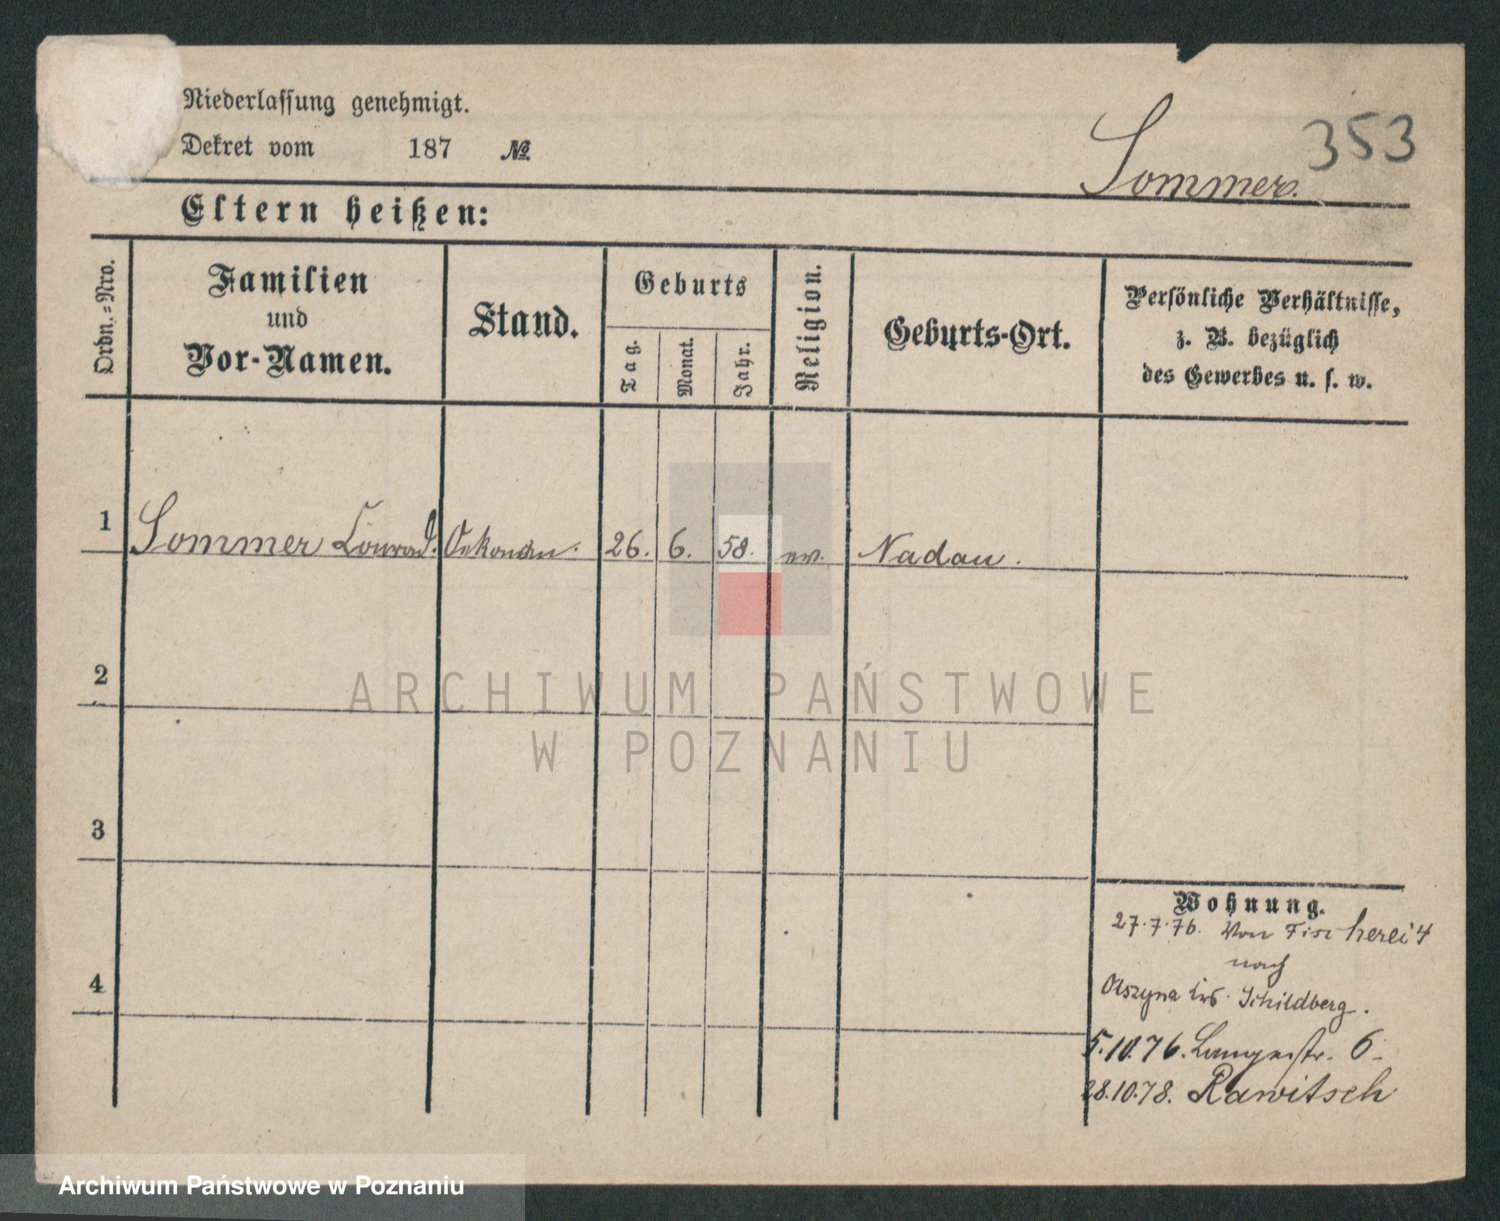 Niederlassung genehmigt.
Dekret vom 187 №
Sommer.
353
Eltern heißen:
Ordn.=Nro.
Familien
und
Vor-Namen.
Stand.
Geburts
Tag.
Monat.
Jahr.
Religion.
Geburts-Ort.
Persönliche Verhältnisse,
z. B. bezüglich
des Gewerbes u. s. w.
1 Sommer Conrad. Oekonom. 26. 6. 58. ev. Nadau.
2
ARCHIWUM PAŃSTWOWE
W POZNANIU
3
Wohnung.
27.7.76. Von Fischerei 4
nach
4
Olszyna Krs. Schildberg.
5.10.76. Langestr. 6.
28.10.78. Rawitsch
Archiwum Państwowe w Poznaniu